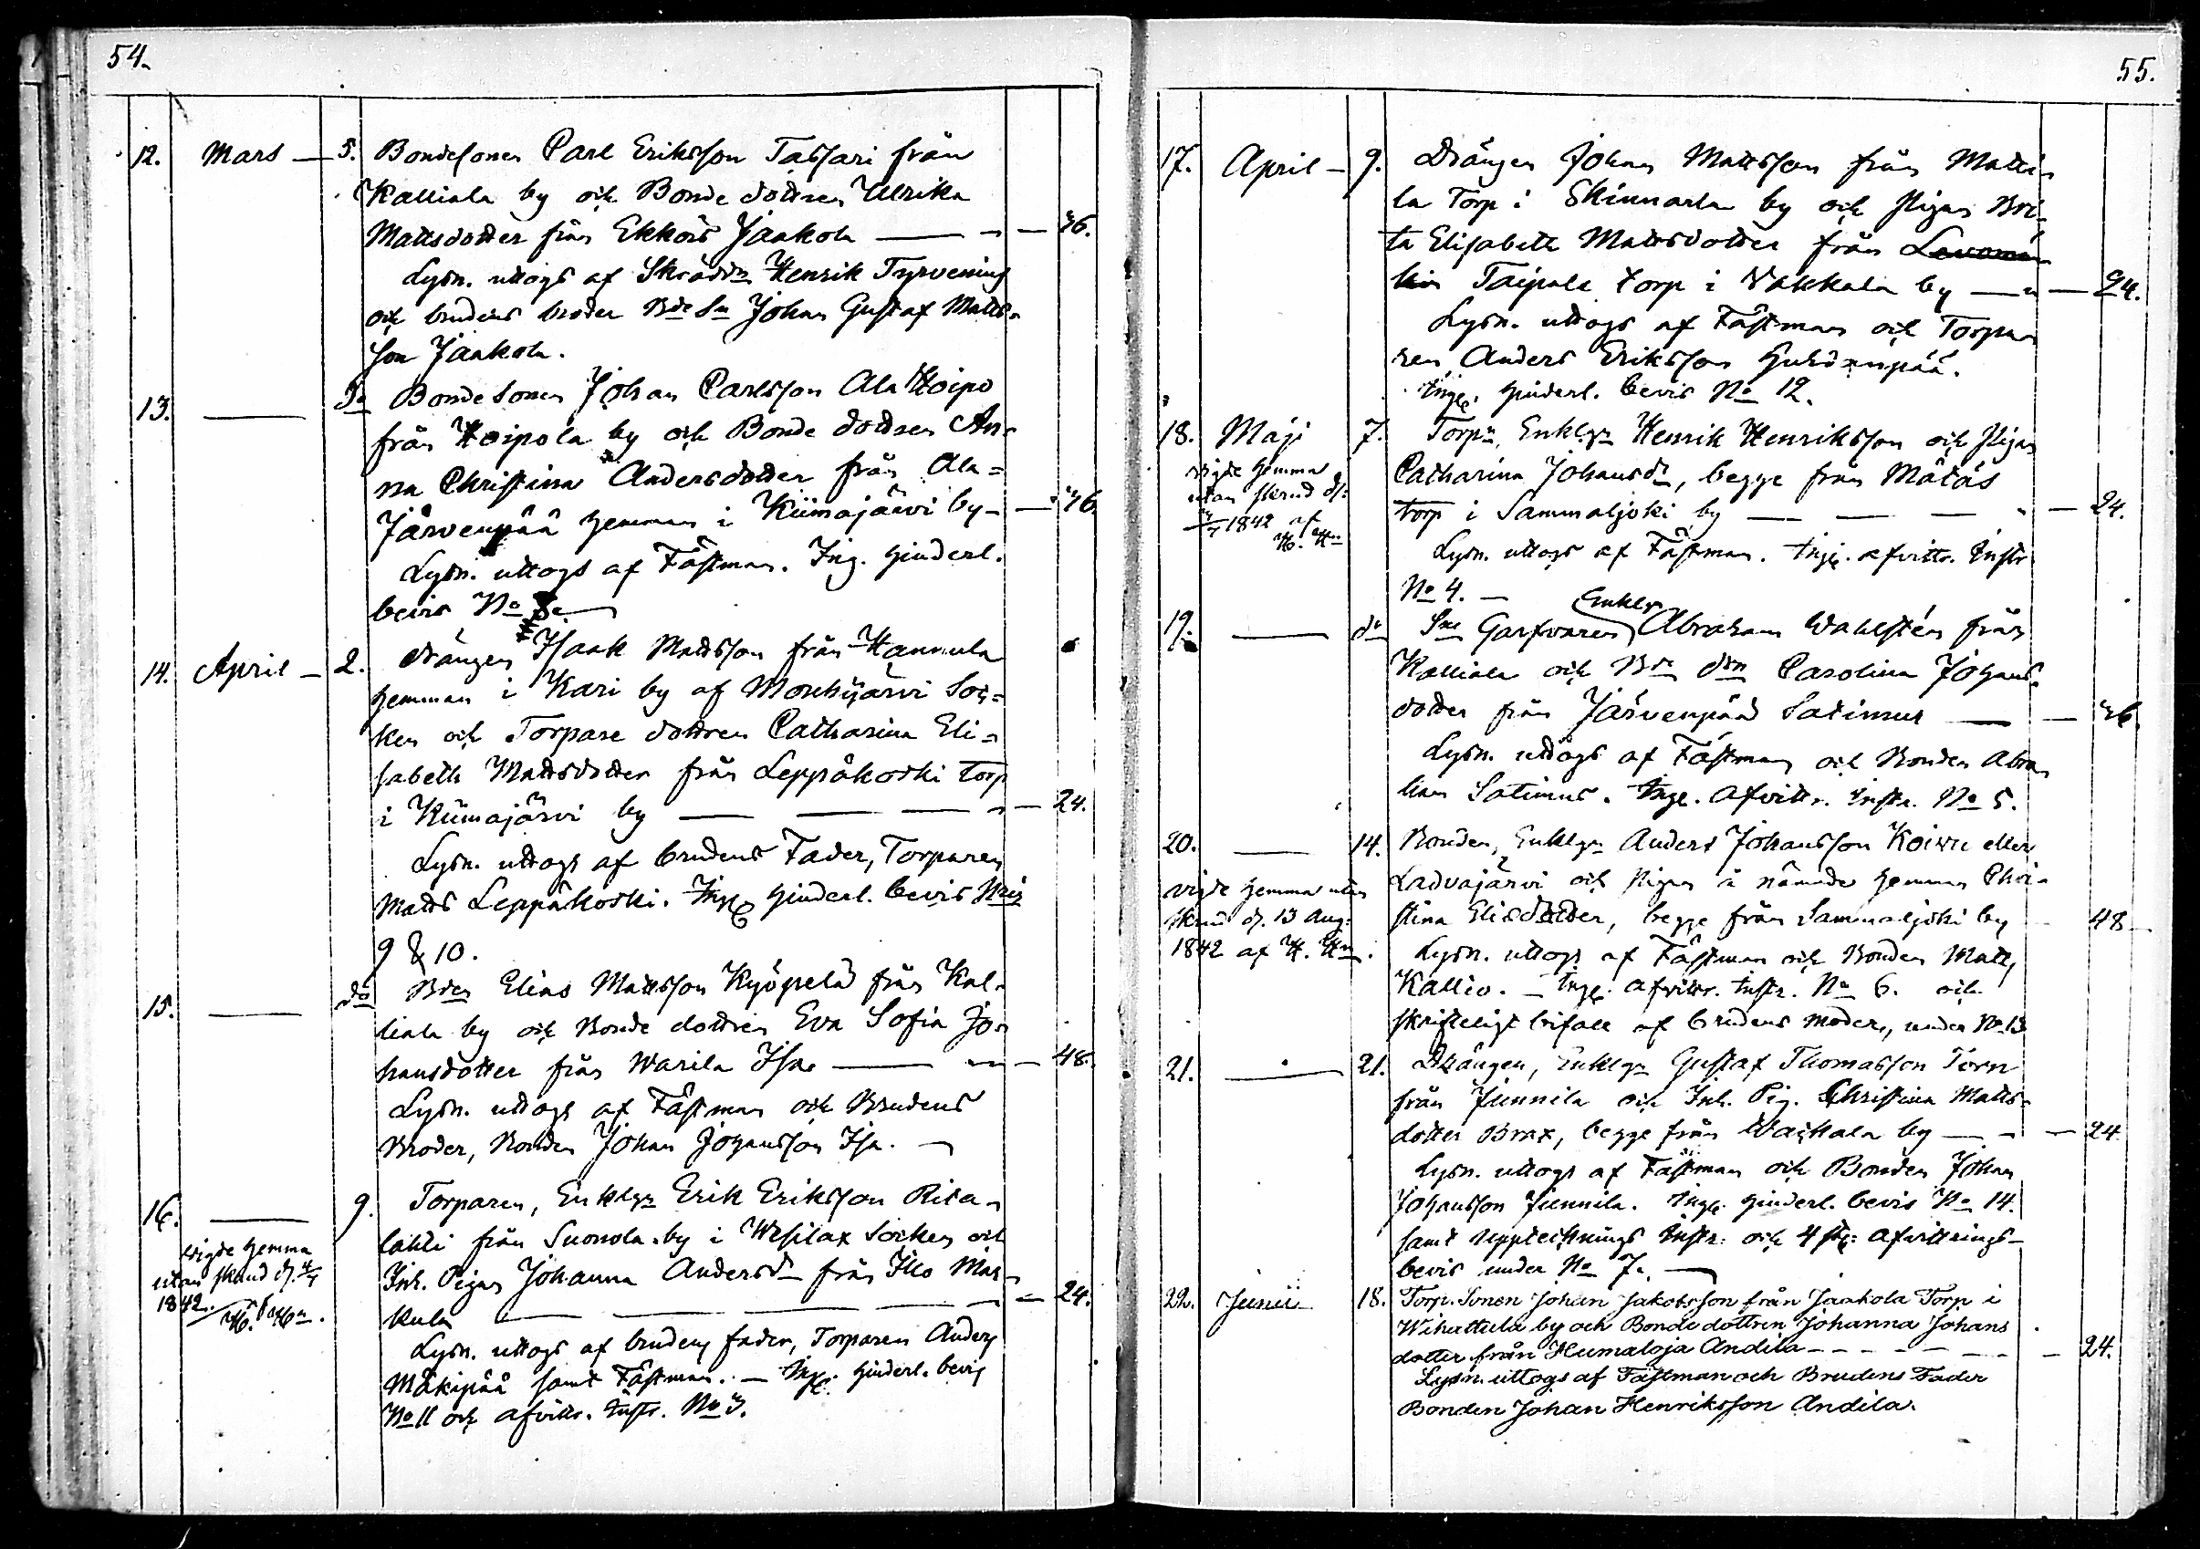 54.
12. Mars — 5. Bondesonen Carl Eriksson Tassari från
Kalliala by och Bonde dottren Ulrika
Mattsdotter från Ekkois Jaakola — " — 96.
Lysn. uttogs af Skrädd. Henrik Tyrvening
och brudens broder Bde Sn Johan Gustaf Matts-
son Jaakola.
13. — do Bondesonen Johan Carlsson Ala Hoipo
från Hoipola by och Bonde dottren An-
na Christina Andersdotter från Ala=
Järvenpää hemman i Kiimajärvi by — " 96.
Lysn. uttogs af Fästman. Ing. hinderl.
bevis No 8.
14. April — 2. Drängen Isaak Mattsson från Hannula
hemman i Kari by af Mouhijärvi Soc=
ken och Torpare dottren Catharina Eli=
sabeth Mattsdotter från Leppäkoski torp
i Kiimajärvi by — — — " — 24.
Lysn. uttogs af brudens Fader, Torparen
Matts Leppäkoski. Ingg hinderl. bevis Nris
9 & 10.
15. — do Bden Elias Mattsson Kyöpelä från Kal-
liala by och Bonde dottren Eva Sofia Jo-
hansdotter från Warila Isa — " — 48.
Lysn. uttogs af Fästman och Brudens
Broder, Bonden Johan Johansson Isa. —
16. — 9. Torparen, Enklgn Erik Eriksson Rita-
lahti från Suonola by i Wesilax Socken och
Inh. Pigan Johanna Andersdr från Illo Mar-
kula — — — — 24.
Wigde hemma
utan skrud d. 4/4
1842. af
H. Hn.
Lysn. uttogs af brudens fader, Torparen Anders
Mäkipää samt Fästman. — Ingg. hinderl. bevis
No 11 och afvittr. Instr. No 3.
55.
17. April — 9. Drängen Johan Mattsson från Matti-
la Torp i Skinnarla by och Pigan Bri-
ta Elisabeth Mattsdotter från
Taipale torp i Wakkala by — " — 24.
Lysn. uttogs af Fästman och Torpa-
ren Anders Eriksson
Ingg. hinderl. bevis No 12.
18. Maji 7. Torpn, Enklgn Henrik Henriksson och Pigan
Catharina Johansdr, begge från Mätäs
torp i Sammaljoki by — — — " — 24.
wigde hemma
utan skrud d.
1842 af
H. Hn
Lysn. uttogs af Fästman. Ingg. afvittr. Instr
No 4. —
19. — do Sne Garfvaren Enklgn Abraham Wahlstén från
Kalliala och Bde dtrn Carolina Johans-
dotter från Järvenpää Satimus — — 96.
Lysn. uttogs af Fästman och Bonden Abra
ham Satimus. Ingg. Afvittr. Instr. No 5.
20. — 14. Bonden, Enklgn Anders Johansson Koivu eller
Ladvajärvi och Pigan å nämnde hemman Chri-
stina Elisdotter, begge från Sammaljoki by — 48
wigde hemma utan
skrud d. 13 Aug:
1842 af H. Hn.
Lysn. uttogs af Fästman och Bonden Matts
Kallio. — Ingg. afvittr. Instr. No 6. och
skrifteligt bifall af brudens moder, under No 13
21. — 21. Drängen, Enklgn Gustaf Thomasson Törn
från Junnila och Inh. Pig. Christina Matts-
dotter Brax, begge från Wakkala by — " — 24
Lysn. uttogs af Fästman och Bonden Johan
Johansson Junnila. Ingg. hinderl. bevis No 14.
samt Upptecknings Instr: och 4 st: Afvittrings-
bevis under No 7. —
22. Junii 18. Torp. Sonen Johan Jakobsson från Jaakola Torp i
Wihattula by och Bonde dottren Johanna Johans
dotter från Humaloja Andila — — — — — 24.
Lysn. uttogs af Fästman och Brudens Fader
Bonden Johan Henriksson Andila.